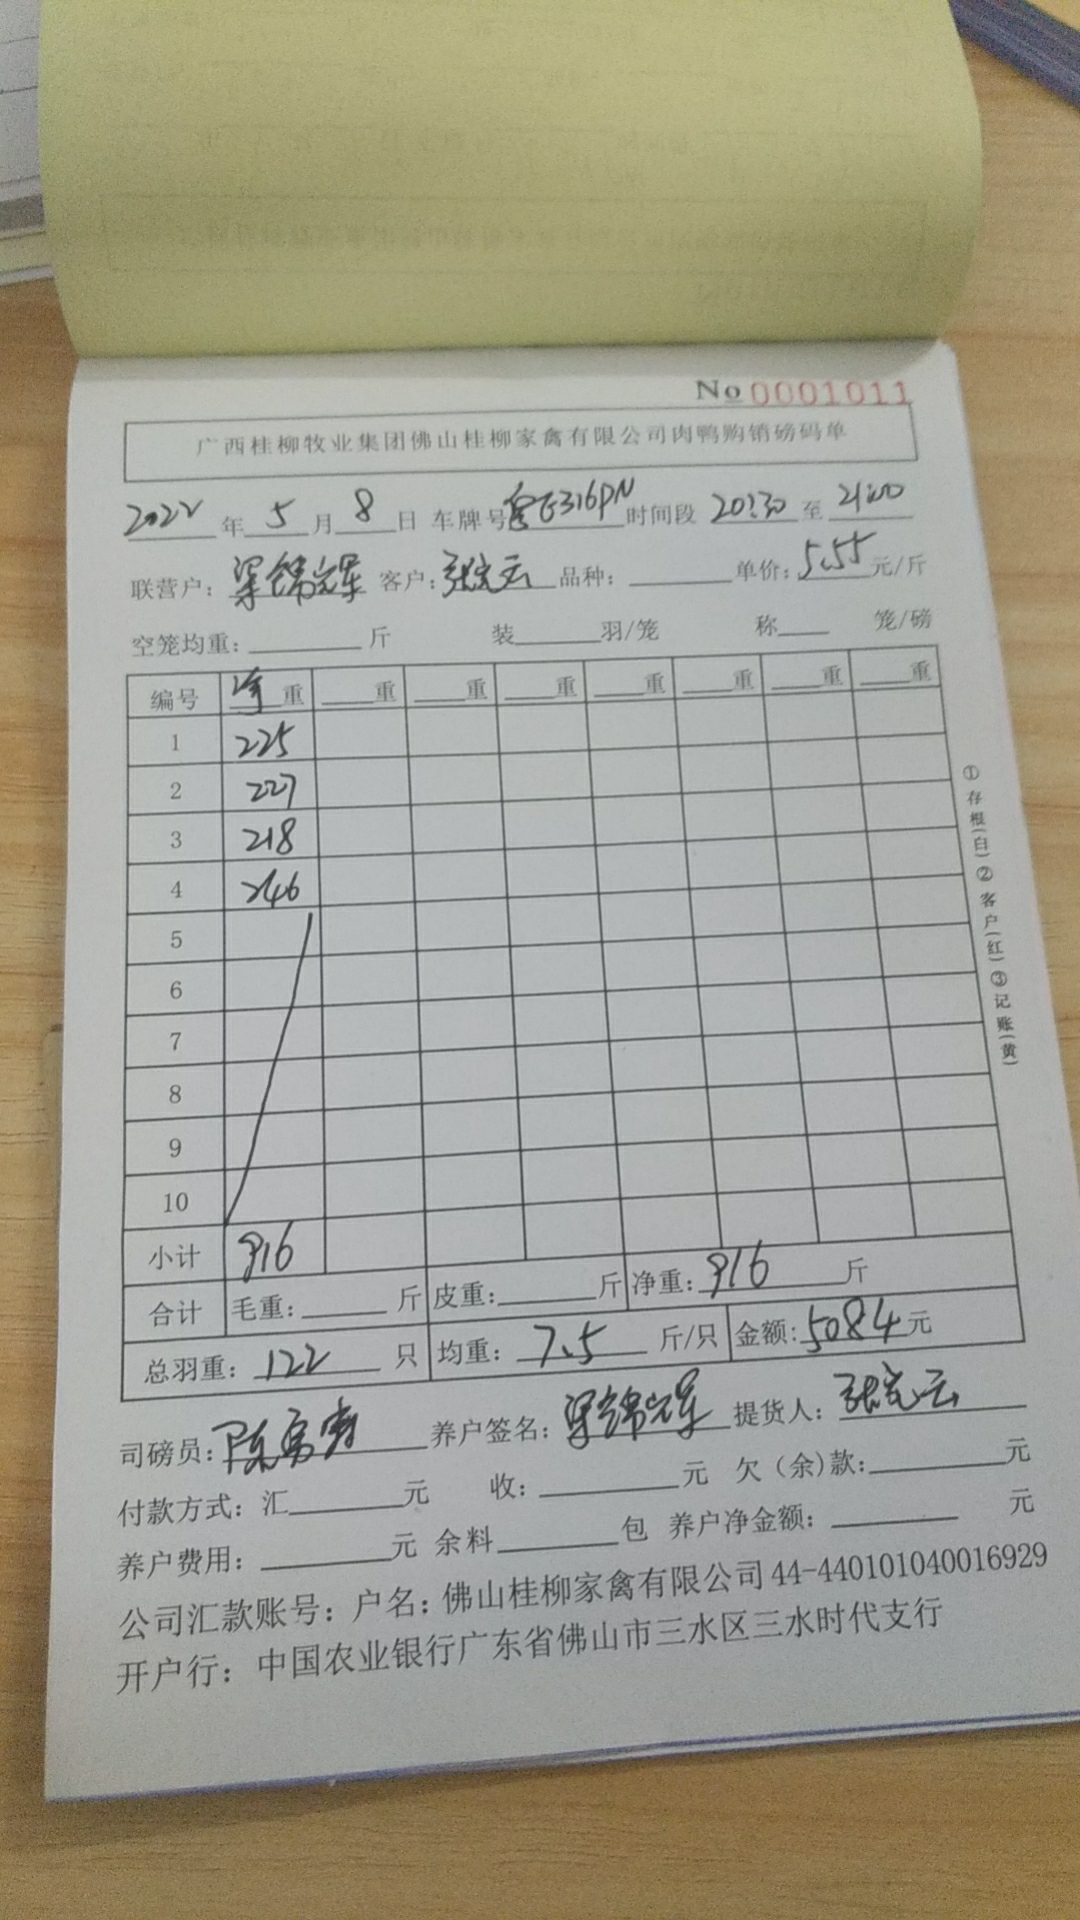 No 0001011
广西桂柳牧业集团佛山桂柳家禽有限公司肉鸭购销磅码单
2022 年 5 月 8 日 车牌号粤E316PN 时间段 20:30 至 21:00
联营户: 梁锦辉 客户: 张云 品种: 单价: 5.55 元/斤
空笼均重: 斤 装 羽/笼 称 笼/磅
编号 净重 重 重 重 重 重 重 重
1 225
2 227
3 218
4 246
5
6
7
8
9
10
小计 916
合计 毛重: 斤 皮重: 斤 净重: 916 斤
总羽重: 122 只 均重: 7.5 斤/只 金额: 5084 元
司磅员: 陈 养户签名: 梁锦辉 提货人: 张云
付款方式: 汇 元 收: 元 欠（余)款: 元
养户费用: 元 余料 包 养户净金额: 元
公司汇款账号: 户名: 佛山桂柳家禽有限公司 44-440101040016929
开户行: 中国农业银行广东省佛山市三水区三水时代支行
①存根(白)②客户(红)③记账(黄)